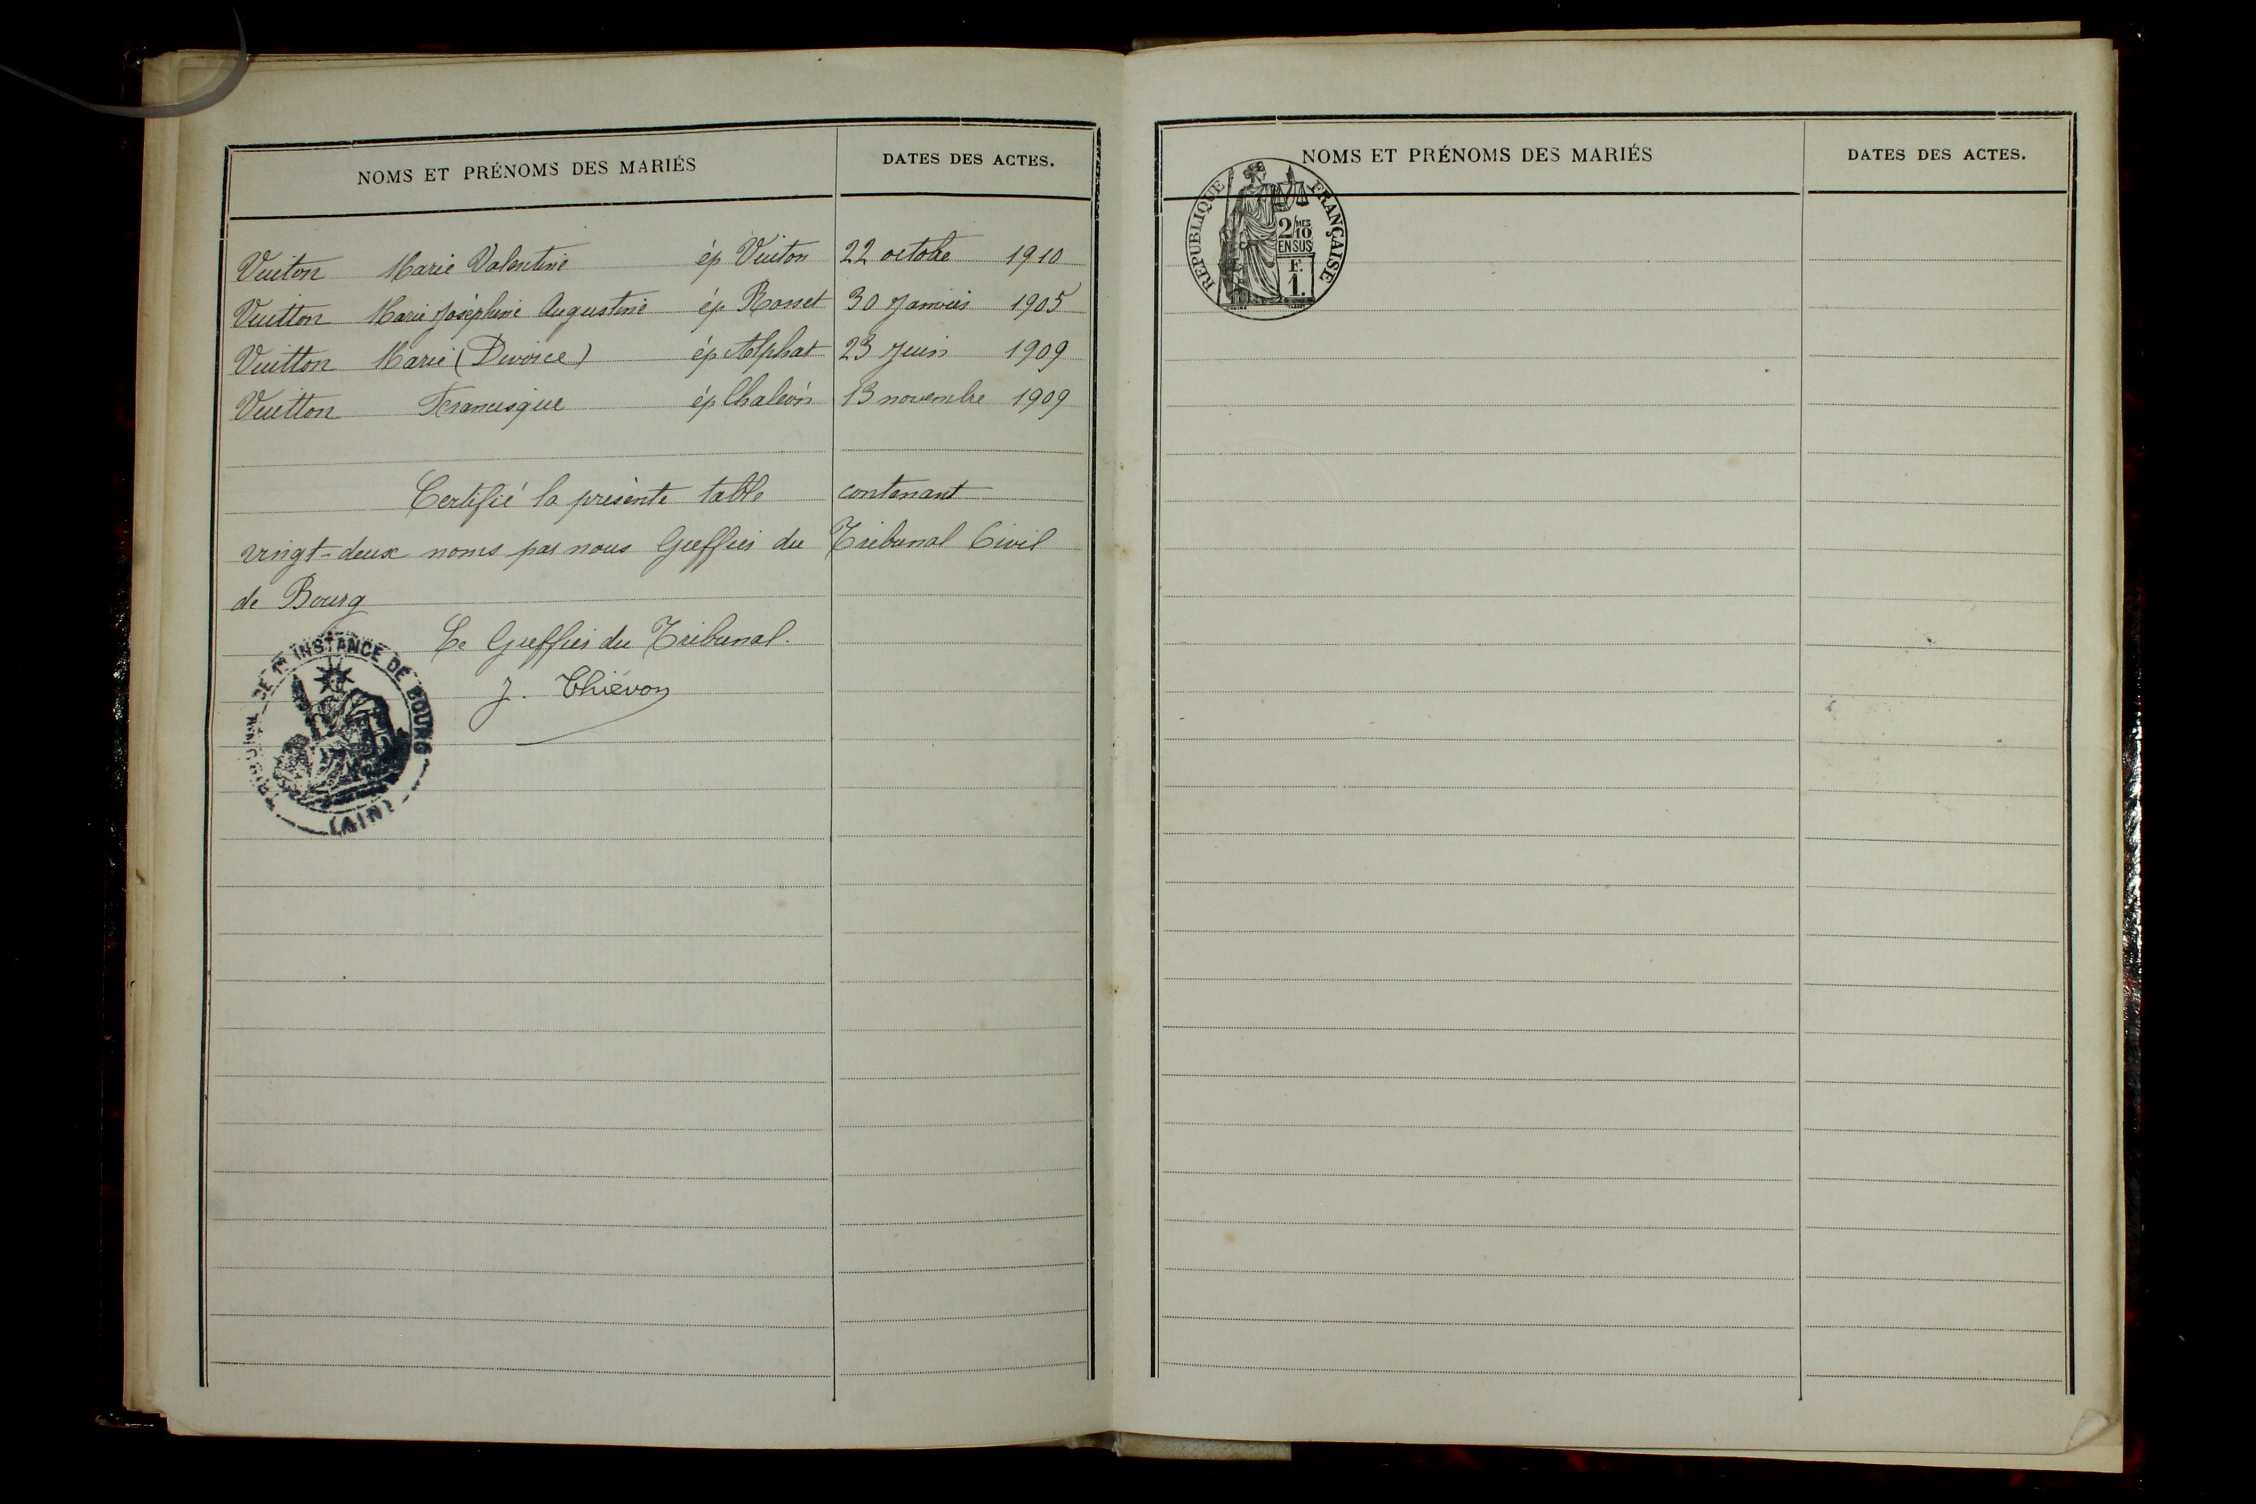 NOMS ET PRÉNOMS DES MARIÉS DATES DES ACTES.
Vuiton Marie Valentine ép Vuiton 22 octobre 1910
Vuitton Marie Joséphine Augustine ép Rosset 30 Janvier 1905
Vuitton Marie (Divorce) ép Alphat 23 Juin 1909
Vuitton Francisque ép Chaleón 13 novembre 1909
Certifié la présente table contenant
vingt-deux noms par nous Greffier du Tribunal Civil
de Bourg
Le Greffier du Tribunal.
J. Thiévon
TRIBUNAL DE 1re INSTANCE DE BOURG
(AIN)
NOMS ET PRÉNOMS DES MARIÉS DATES DES ACTES.
REPUBLIQUE FRANÇAISE
2/10 MES
EN SUS
F.
1.